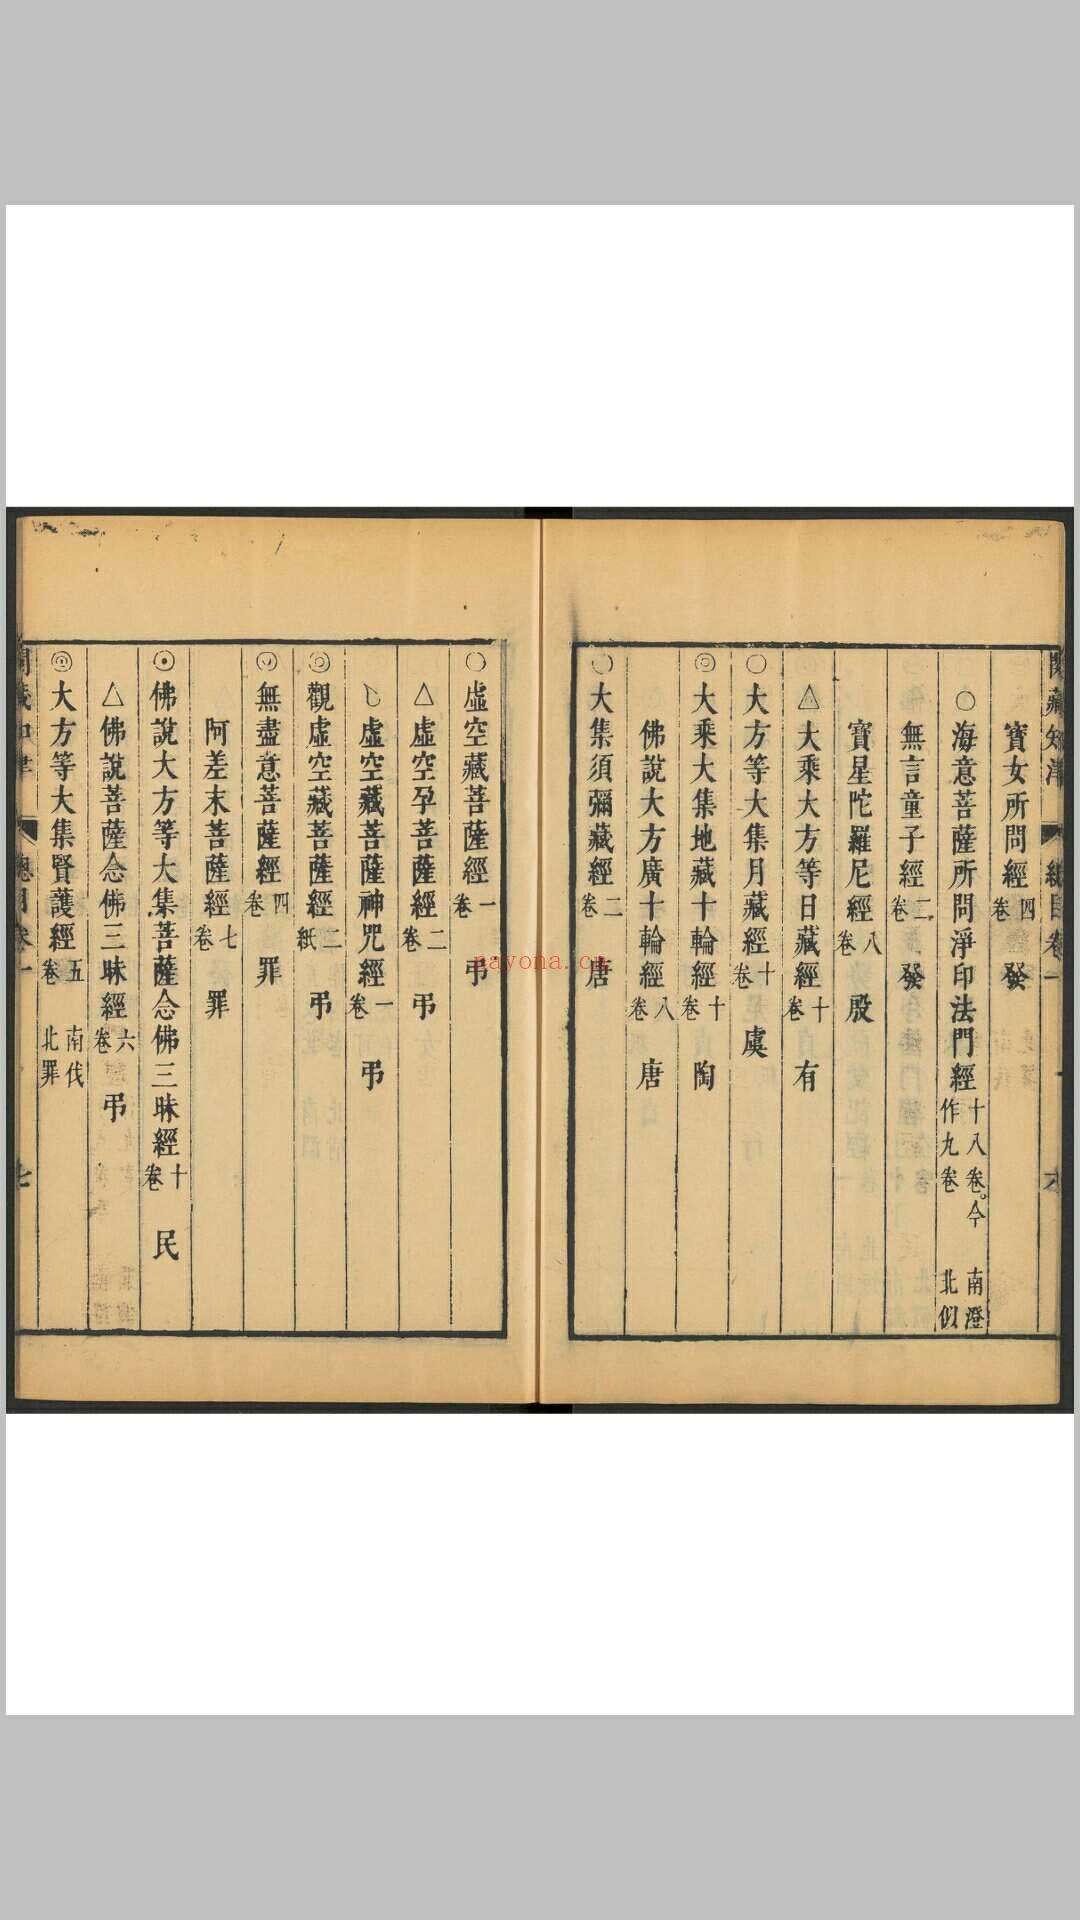 閱藏知津 總目卷一 六
寶女所問經 四卷 發
○海意菩薩所問淨印法門經 十八卷。今作九卷 南澄北似
無言童子經 二卷 發
寶星陀羅尼經 八卷 殷
△大乘大方等日藏經 十卷 有
○大方等大集月藏經 十卷 虞
◎大乘大集地藏十輪經 十卷 陶
佛說大方廣十輪經 八卷 唐
○大集須彌藏經 二卷 唐
○虛空藏菩薩經 一卷 弔
△虛空孕菩薩經 二卷 弔
虛空藏菩薩神咒經 一卷 弔
◎觀虛空藏菩薩經 二紙 弔
無盡意菩薩經 四卷 罪
阿差末菩薩經 七卷 罪
⊙佛說大方等大集菩薩念佛三昧經 十卷 民
△佛說菩薩念佛三昧經 六卷 弔
◎大方等大集賢護經 五卷 南伐北罪
閱藏知津 總目卷一 七
nayona.cn